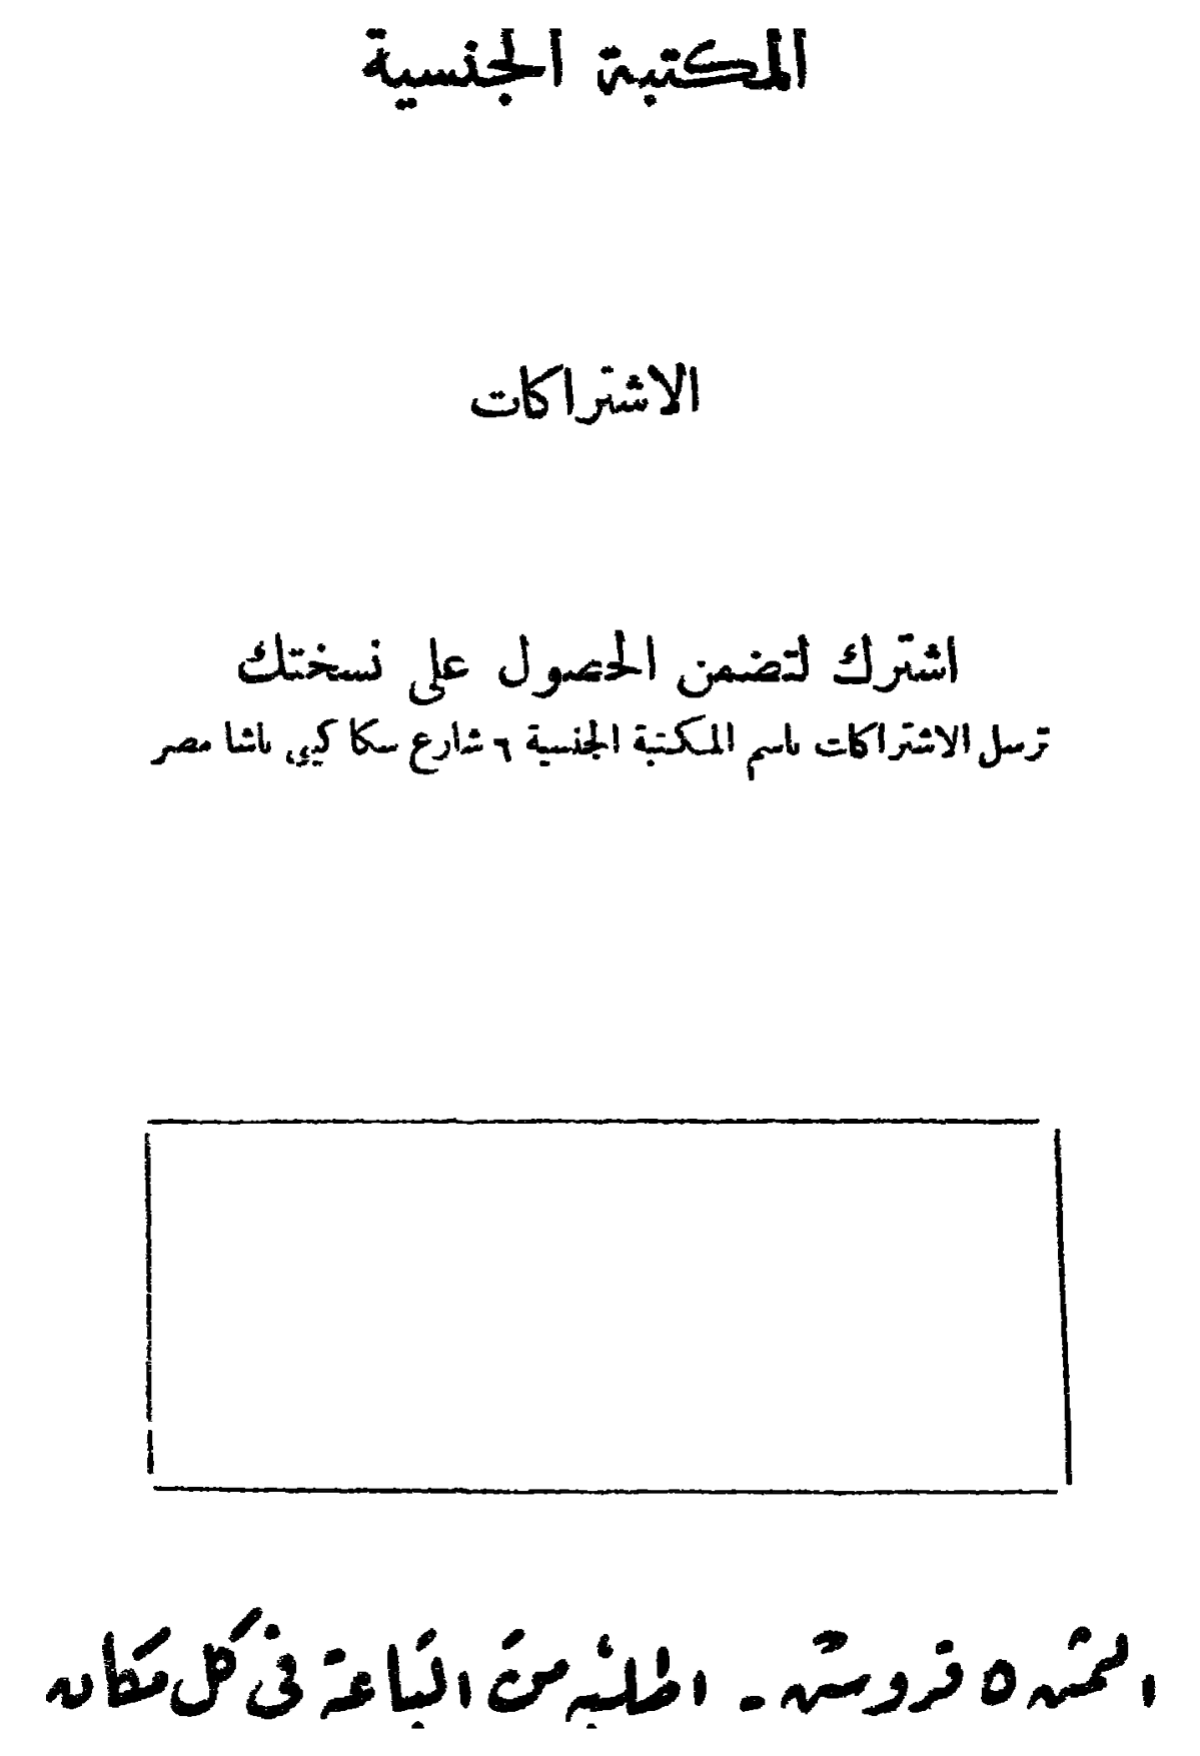 المكتبة الجنسية
الاشتراكات
اشترك لتضمن الحصول على نسختك
ترسل الاشتراكات باسم المكتبة الجنسية ٦ شارع سكاكيني باشا مصر
الثمن ٥ قروش - اطلبه من الباعة فى كل مكان